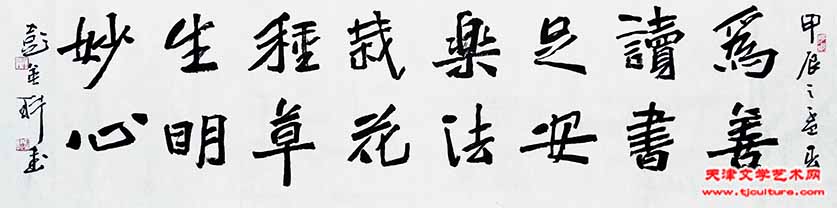 甲辰之孟夏
爲善
讀書
足安
樂法
栽花
種草
生明
妙心
彭英科書
天津文学艺术网
www.tjculture.com